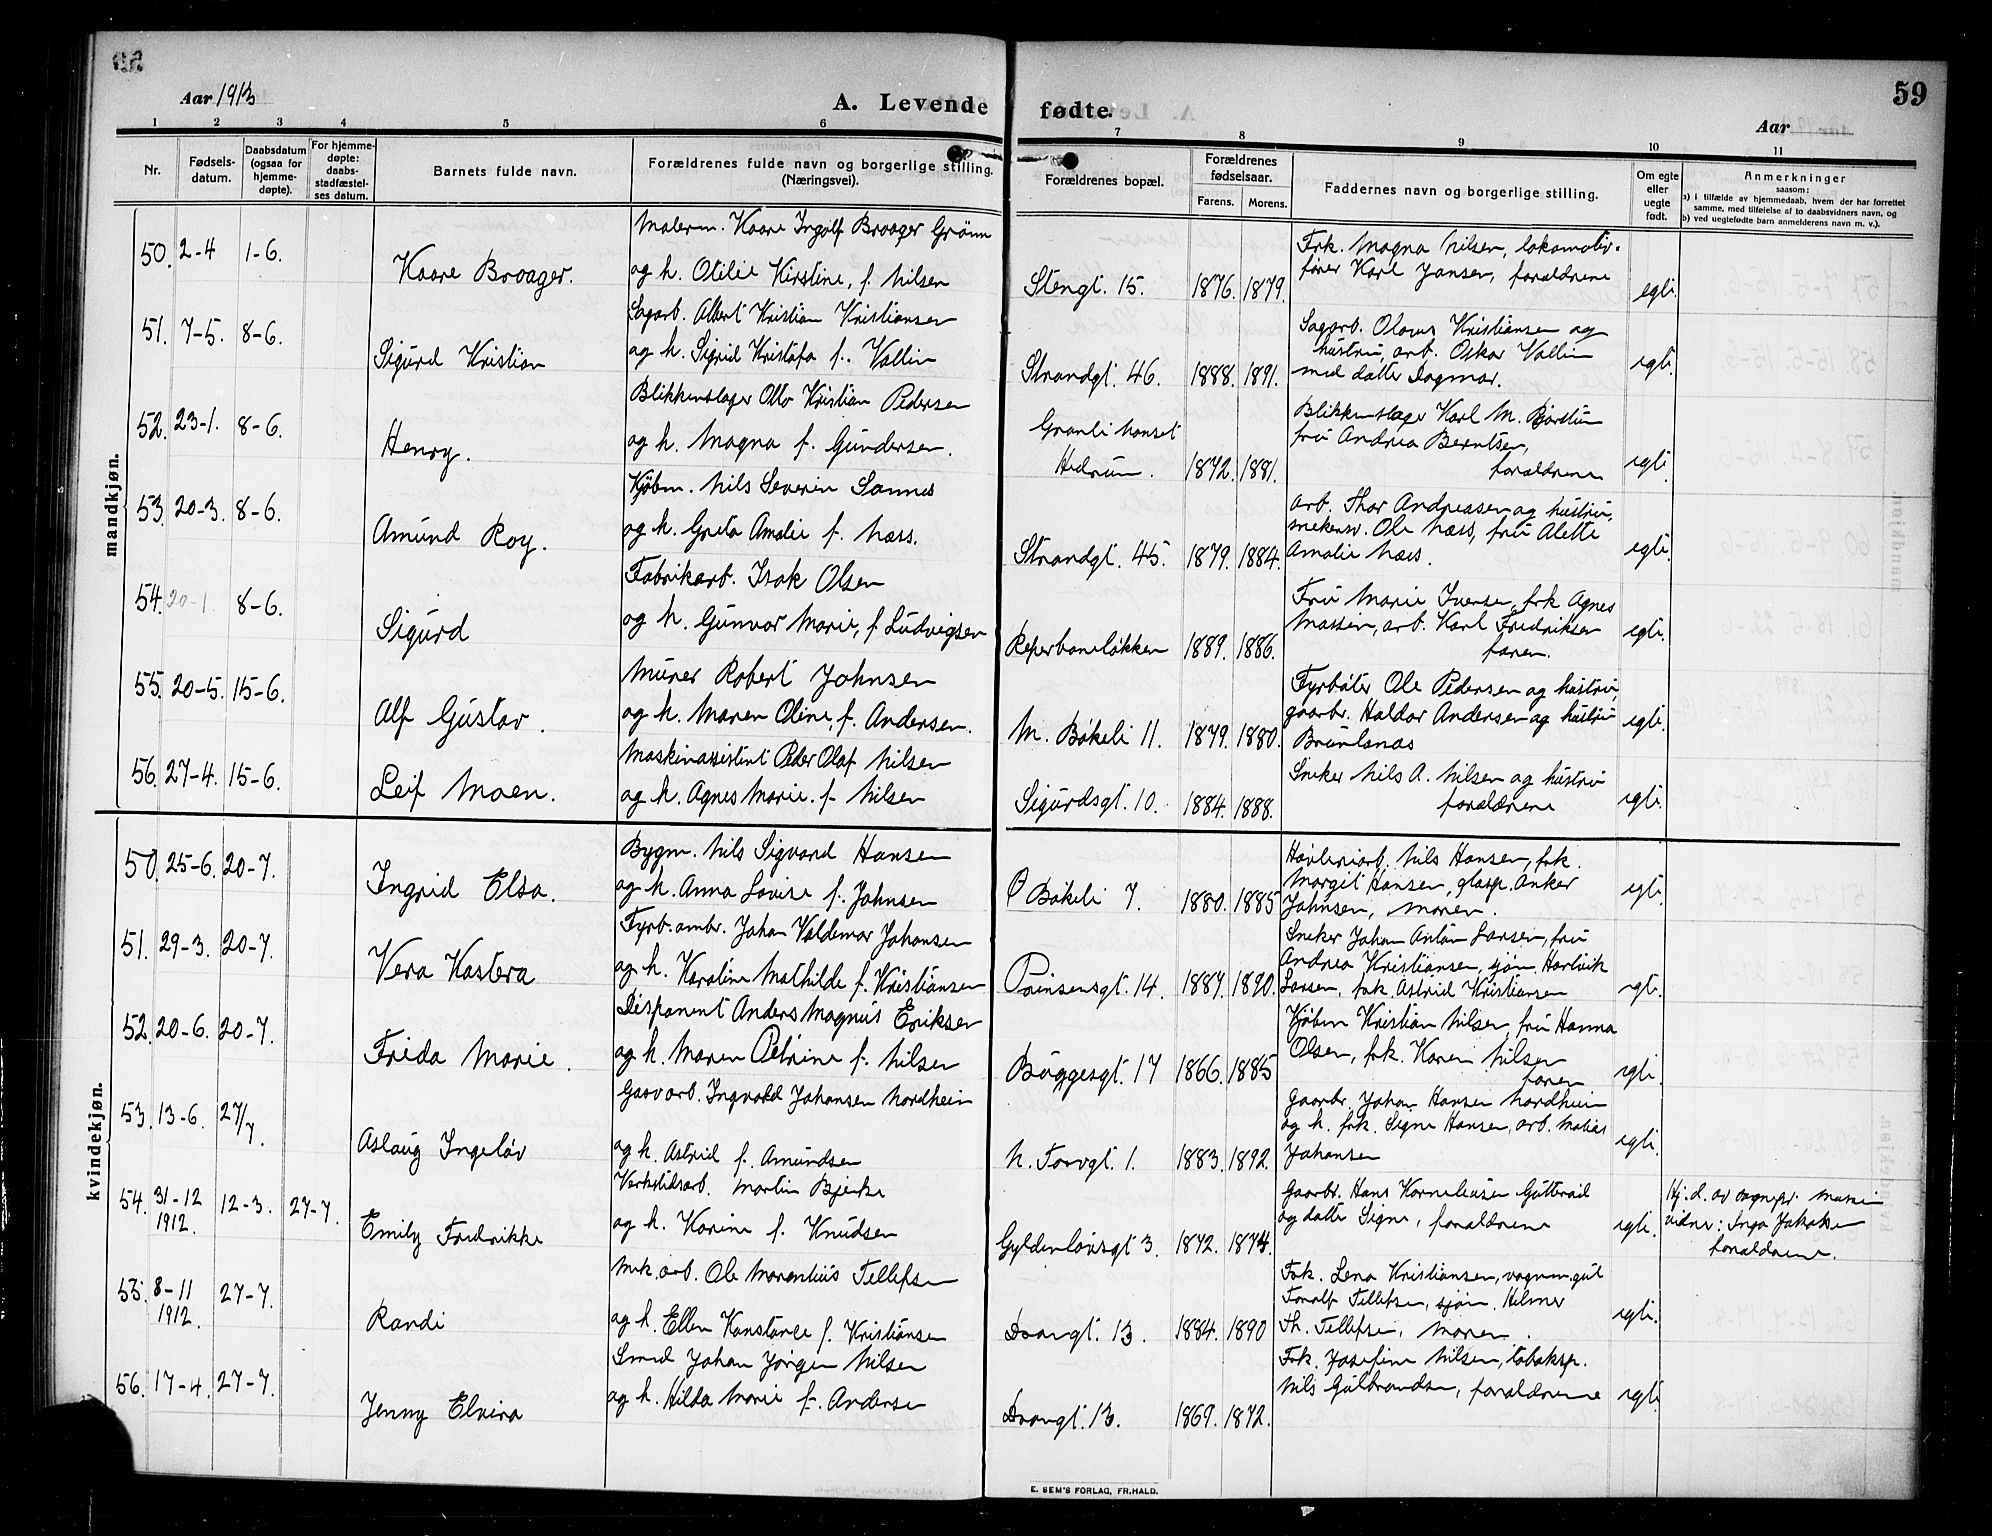 59
Aar 1913
A. Levende
fødte.
Aar
1 2 3 4 5 6 7 8 9 10 11
Nr.
Fødsels-
datum.
Daabsdatum
(ogsaa for
hjemme-
døpte).
For hjemme-
døpte:
daabs-
stadfæstel-
ses datum.
Barnets fulde navn.
Forældrenes fulde navn og borgerlige stilling.
(Næringsvei).
Forældrenes bopæl.
Forældrenes
fødselsaar.
Farens. Morens.
Faddernes navn og borgerlige stilling.
Om egte
eller
uegte
født.
Anmerkninger
saasom:
a) i tilfælde av hjemmedaab, hvem der har forrettet
samme, med tilføielse af to daabsvidners navn, og
b) ved uegtefødte barn anmelderens navn m. v.).
mandkjøn.
50. 2-4 1-6. Kaare Broager.
Malerm. Kaare Ingolf Broager Grönn
og h. Otilie Kirstine, f. Nilsen
Stengt. 15. 1876. 1879.
Frk. Magna Nilsen, lokomotiv-
fører Karl Jansen, forældrene
egte.
51. 7-5. 8-6. Sigurd Kristian
Sagarb. Albert Kristian Kristiansen
og h. Sigrid Kristofa f. Vallin
Strandgt. 46. 1888. 1891.
Sagarb. Olavus Kristiansen og
hustru, arb. Oskar Vallin
med datter Dagmar.
egte.
52. 23-1. 8-6. Henry.
Blikkenslager Otto Kristian Pedersen
og h. Magna f. Gundersen.
Granli Nanset
Hedrum. 1872. 1881.
Blikkenslager Karl M. Bjerdün
fru Andrea Berntsen,
forældrene
egte.
53. 20-3. 8-6. Amund Roy.
Kjöbm. Nils Severin Sannes
og h. Greta Amalie f. Næss.
Strandgt. 45. 1879. 1884.
arb. Thor Andreasen og hustru,
snekersv. Ole Næss, fru Alette
Amalie Næss.
egte.
54. 20-1. 8-6. Sigurd
Fabrikarb. Isak Olsen
og h. Gunvor Marie, f. Ludvigsen
Reperbaneløkken 1889. 1886.
Fru Marie Iversen, frk Agnes
Massen, arb. Karl Fredriksen
faren.
egte.
55. 20-5. 15-6. Alf Gustav.
Murer Robert Johnsen
og h. Maren Oline, f. Andersen.
M. Bökeli 11. 1879. 1880.
Fyrbøter Ole Pedersen og hustru,
gaarbr. Haldor Andersen og hustru
Brunlanæs
egte.
56. 27-4. 15-6. Leif Moen.
Maskinassistent Peder Olaf Nilsen
og h. Agnes Marie. f. Nilsen
Sigurdsgt. 10. 1884. 1888.
Sneker Nils A. Nilsen og hustru
forældrene
egte.
kvindekjøn.
50. 25-6. 20-7. Ingrid Elsa.
Bygm. Nils Sigvard Hansen
og h. Anna Lovise f. Johnsen
Ø Bökeli 7. 1880. 1885
Høvleriarb. Nils Hansen, frk.
Margit Hansen, glasp. Anker
Johnsen, moren.
egte.
51. 29-3. 20-7. Vera Kastera
Fyrb. ambr. Johan Valdemar Johansen
og h. Karoline Mathilde f. Kristiansen
Prinsensgt. 14. 1887. 1890.
Sneker Johan Anton Larsen, fru
Andrea Kristiansen, sjøm. Hartvik
Larsen, frk. Astrid Kristiansen
egte.
52. 20-6. 20-7. Frida Marie.
Disponent Anders Magnus Eriksen
og h. Maren Petrine f. Nilsen
Buggesgt. 17 1866. 1885
Kjöbm Kristian Nilsen, fru Hanna
Olsen, frk. Karen Nilsen
faren
egte.
53. 13-6. 27/7. Aslaug Ingelöv
Gasv arb. Ingvald Johansen Nordheim
og h. Astrid f. Amundsen
N. Torvgt. 1. 1883. 1892.
Gaarbr. Johan Hansen Nordheim
og h. frk. Signe Hansen, arb. Matias
Johansen
egte.
54. 31-12
1912. 12-3. 27-7. Emily Fredrikke
Verkstedsarb. Martin Bjerke
og h. Karine f. Knudsen
Gyldenlövsgt 3. 1872. 1874.
Gaarbr. Hans Korneliusen Gutterød
og datter Signe, forældrene
egte.
Hj. d. av sognepr.
vidner: Inga Jakobsen
forældrene.
55. 8-11
1912. 27-7. Randi
Mek. arb. Ole Marentius Tellefsen
og h. Ellen Konstance f. Kristiansen
Dronngt. 13. 1884. 1890
Frk. Lena Kristiansen, vognm. gut
Toralf Tellefsen, sjøm. Hilmer
Th. Tellefsen, moren.
egte.
56. 17-4. 27-7. Jenny Elvira
Smed Johan Jørgen Nilsen
og h. Hilda Marie f. Andersen
Dronngt. 13. 1869. 1872.
Frk. Josefine Nilsen, tobaksp.
Nils Gulbrandsen, forældrene
egte.
E. SEM'S FORLAG, FR.HALD.